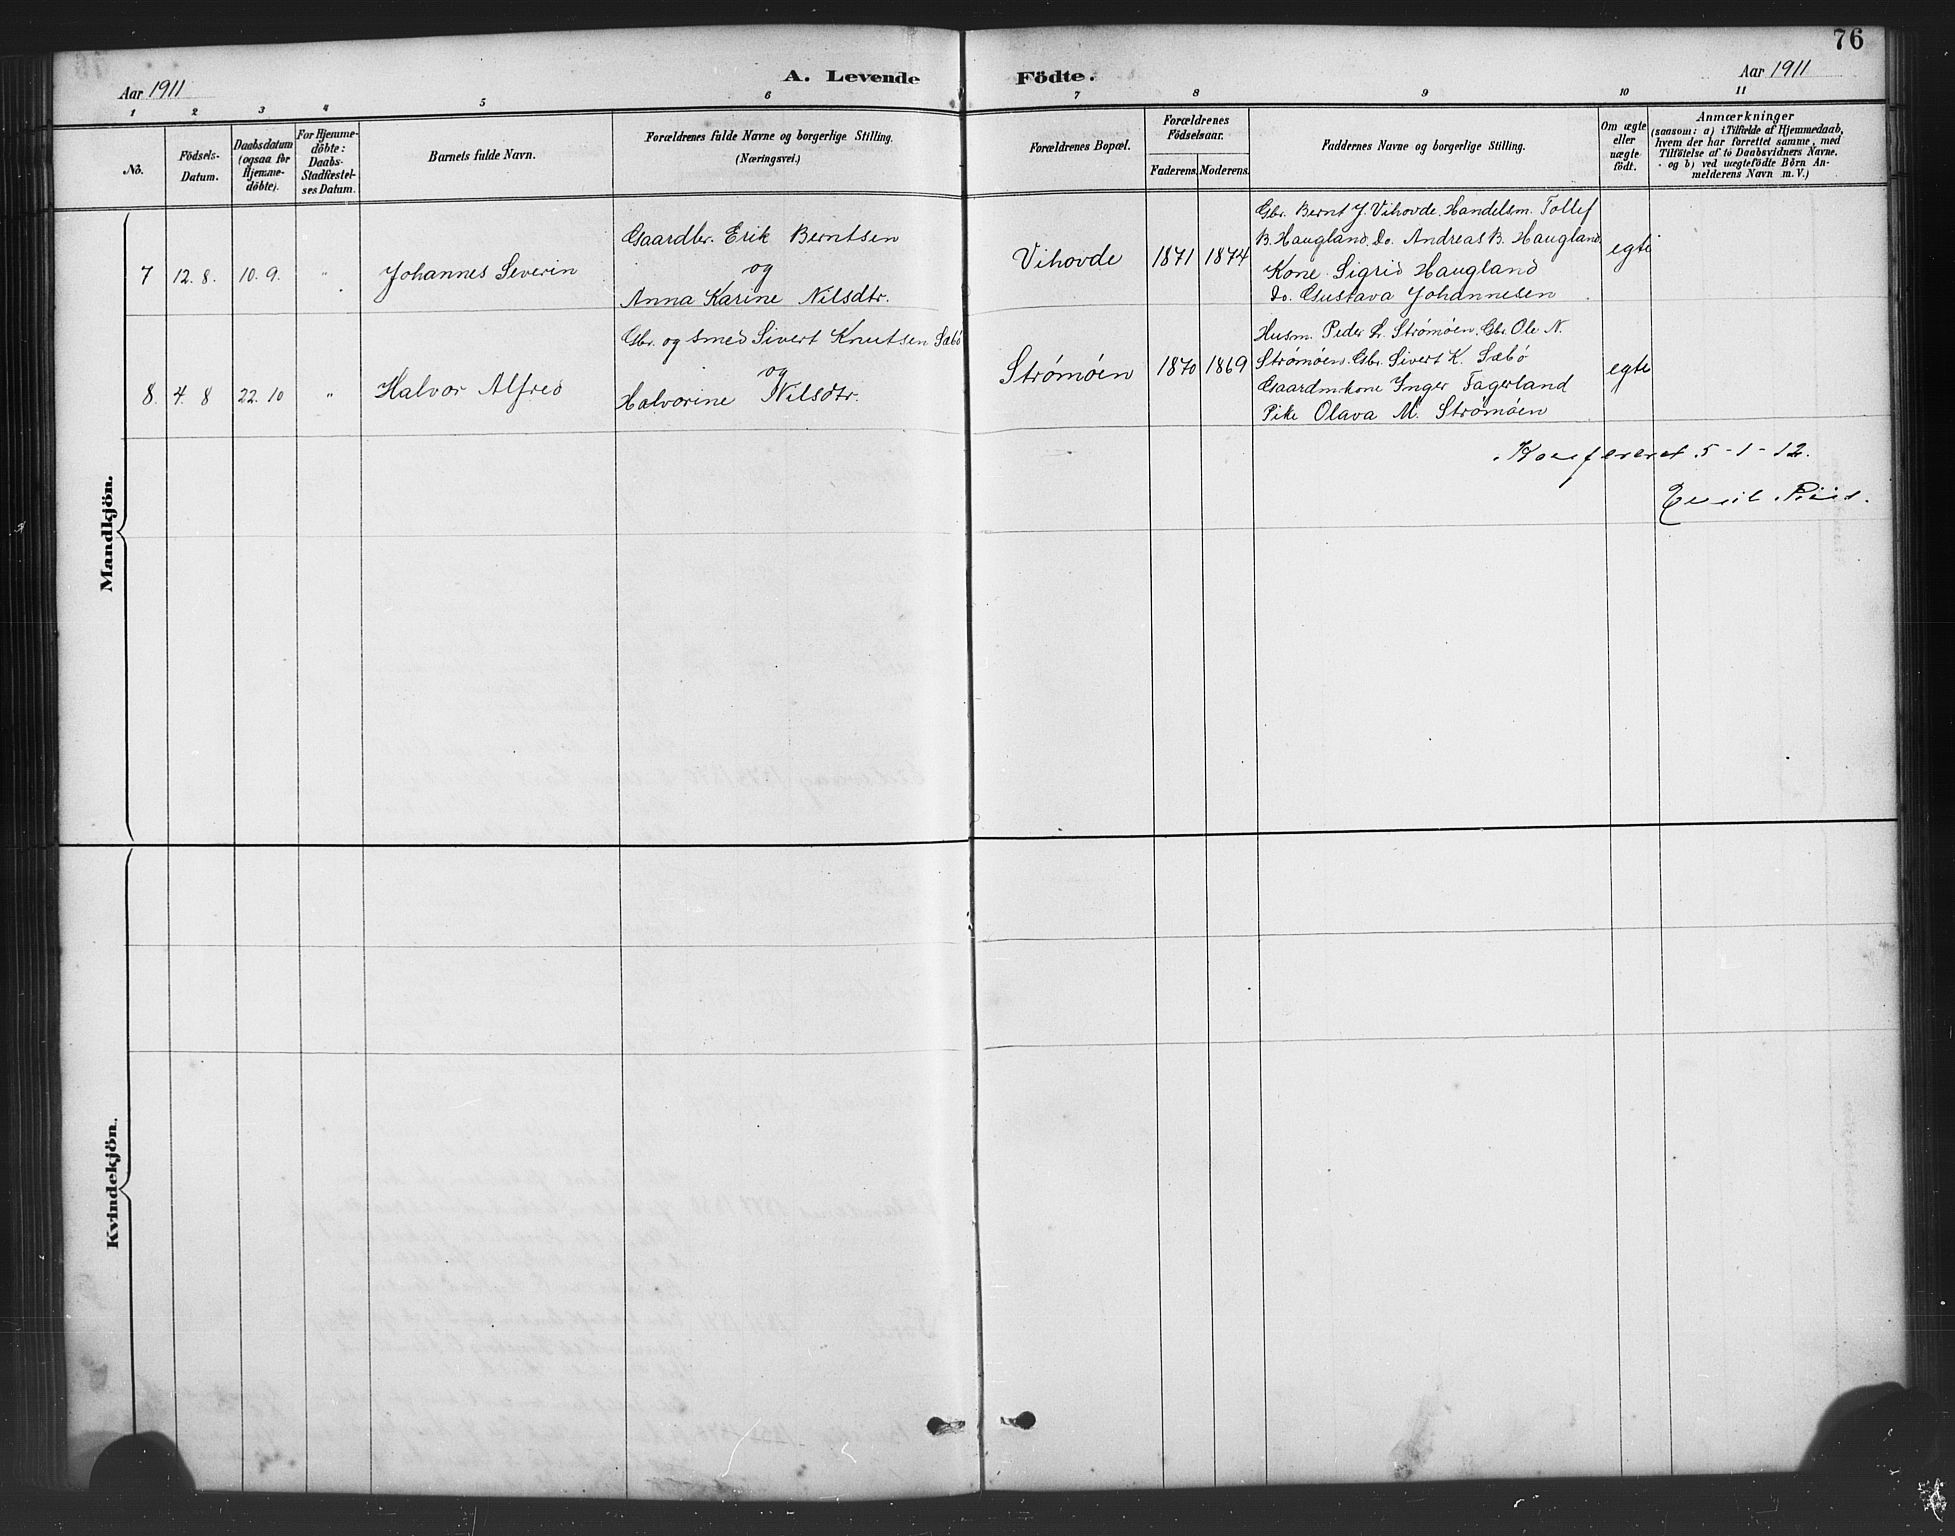 76
A. Levende Födte.
Aar 1911
Aar 1911
1 2 3 4 5 6 7 8 9 10 11
No.
Födsels-
Datum.
Daabsdatum
(ogsaa for
Hjemme-
döbte).
For Hjemme-
döbte:
Daabs-
Stadfæstel-
ses Datum.
Barnets fulde Navn.
Forældrenes fulde Navne og borgerlige Stilling.
(Næringsvei.)
Forældrenes Bopæl.
Forældrenes
Födselsaar.
Faderens. Moderens.
Faddernes Navne og borgerlige Stilling.
Om ægte
eller
uægte
födt.
Anmærkninger
(saasom: a) i Tilfælde af Hjemmedaab,
hvem der har forrettet samme, med
Tilföielse af to Daabsvidners Navne.
og b) ved uegtefödte Börn An-
melderens Navn m. V.)
Mandkjön.
7 12. 8. 10. 9. " Johannes Severin
Gaardbr. Erik Berntsen
og
Anna Karine Nilsdtr.
Vihovde 1871 1874
Gbr. Bernt J. Vihovde. Handelsm. Tollef
B. Haugland. Do. Andreas B. Haugland.
Kone Sigrid Haugland
do. Gustava Johannesen
egte
8. 4. 8 22. 10 " Halvor Alfred
Gbr. og smed Sivert Knutsen Sæbö
og
Halvorine Nilsdtr.
Strømøen 1870 1869
Husm. Peder L. Strømøen. Gbr. Ole N.
Strømøen. Gbr. Sivert K. Sæbö
Gaardm.kone Inger Fagerland
Pike Olava M. Strømöen
egte
Konfereret 5-1-12.
Emil
Kvindekjön.